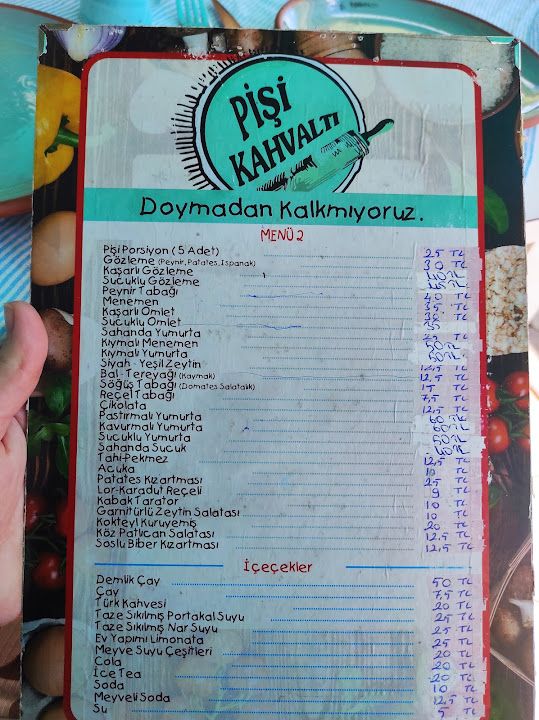 PİŞİ
KAHVALTI
Doymadan Kalkmıyoruz.
MENÜ 2
Pişi Porsiyon ( 5 Adet) 25 TL
Gözleme (Peynir, Patates, Ispanak) 30 TL
Kaşarlı Gözleme 40 TL
Sucuklu Gözleme
Peynir Tabağı 40 TL
Menemen 35 TL
Kaşarlı Omlet TL
Sucuklu Omlet 35
Sahanda Yumurta 25 TL
Kıymalı Menemen 50 TL
Kıymalı Yumurta 50 TL
Siyah - Yeşil Zeytin 12,5 TL
Bal - Tereyağı (Kaymak) 12,5 TL
Söğüş Tabağı (Domates, Salatalık) 15 TL
Reçel Tabağı 7,5 TL
Çikolata 12,5 TL
Pastırmalı Yumurta TL
Kavurmalı Yumurta TL
Sucuklu Yumurta TL
Sahanda Sucuk TL
Tahi-Pekmez 12,5 TL
Acuka 10 TL
Patates Kızartması 25 TL
Lor-Karadut Reçeli 9 TL
Kabak Tarator 10 TL
Garnitürlü Zeytin Salatası 10 TL
Kokteyl Kuruyemiş 20 TL
Köz Patlıcan Salatası 12,5 TL
Soslu Biber Kızartması 12,5 TL
İçeçekler
Demlik Çay 50 TL
Çay 7,5 TL
Türk Kahvesi 20 TL
Taze Sıkılmış Portakal Suyu 25 TL
Taze Sıkılmış Nar Suyu 25 TL
Ev Yapımı Limonata 25 TL
Meyve Suyu Çeşitleri 20 TL
Cola 20 TL
İce Tea 20 TL
Soda 10 TL
Meyveli Soda 12,5 TL
Su 5 TL